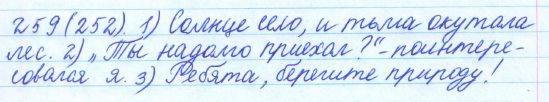 259(252). 1) Солнце село, и тьма окутала
лес. 2) „Ты надолго приехал?“ - поинтере-
совался я. 3) Ребята, берегите природу!